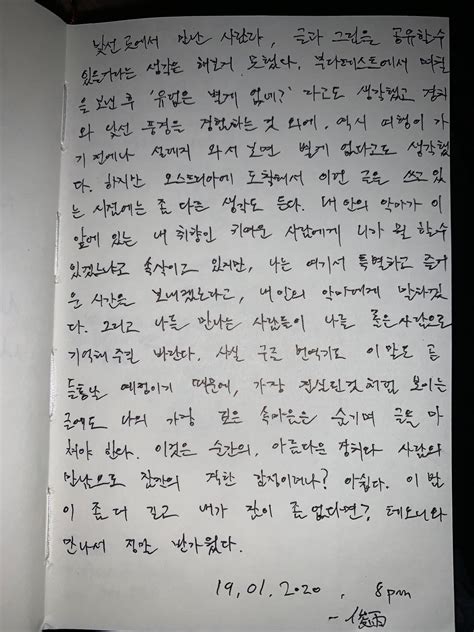 낯선 곳에서 만난 사람과, 글과 그림을 공유할수
있을거라는 생각은 해보지 못했다. 부다페스트에서 며칠
을 보낸 후 '유럽은 별게 없네?' 라고도 생각했고 경치
와 낯선 풍경을 경험하는 것 외에, 역시 여행이 가
기 전에나 설레지 와서 보면 별게 없다고도 생각했
다. 하지만 오스트리아에 도착해서 이런 글을 쓰고 있
는 시점에는 좀 다른 생각도 든다. 내 안의 악마가 이
앞에 있는 내 취향인 귀여운 사람에게 니가 뭘 할수
있겠냐고 속삭이고 있지만, 나는 여기서 특별하고 즐거
운 시간을 보내겠노라고, 내 안의 악마에게 말하겠
다. 그리고 나를 만나는 사람들이 나를 좋은 사람으로
기억해주길 바란다. 사실 구글 번역기로 이 말도 곧
들통날 예정이기 때문에, 가장 진실된것 처럼 보이는
글에도 나의 가장 깊은 속마음은 숨기며 글을 마
쳐야 한다. 이것은 순간의, 아름다운 경치와 사람의
만남으로 잠깐의 격한 감정이려나? 아쉽다. 이 밤
이 좀 더 길고 내가 잠이 좀 없다면?
만나서 정말 반가웠다.
19, 01. 2020 . 8pm